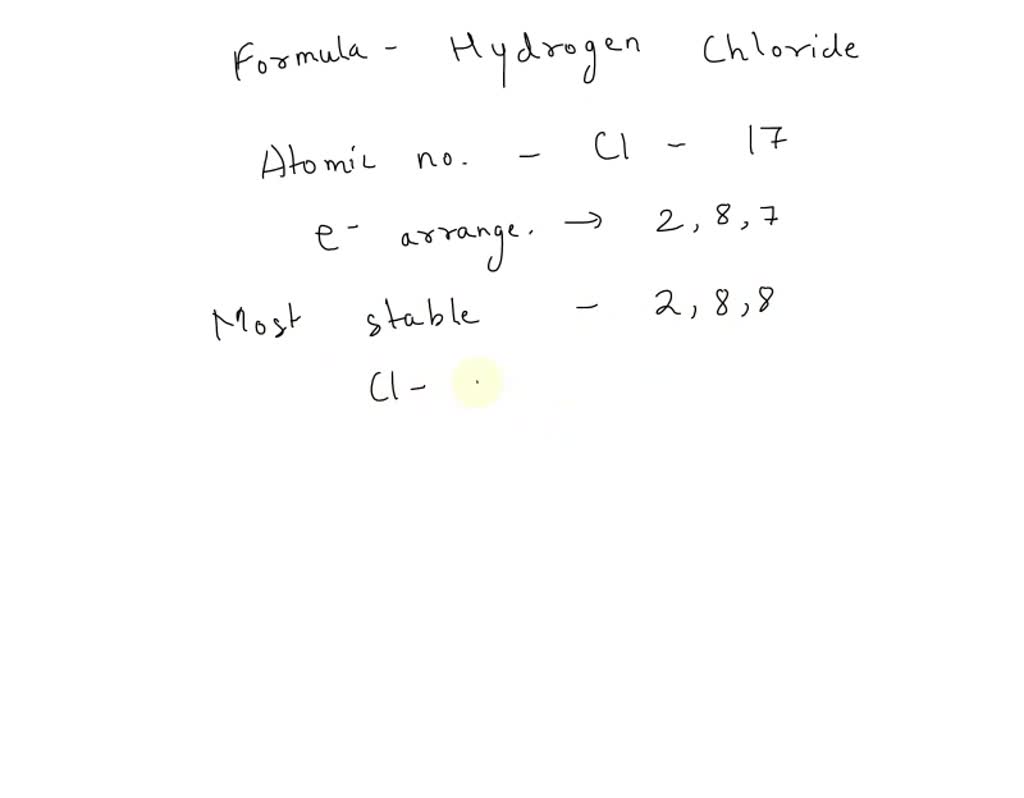 Formula - Hydrogen Chloride
Atomic no. - Cl - 17
e- arrange. → 2, 8, 7
Most stable - 2, 8, 8
Cl -